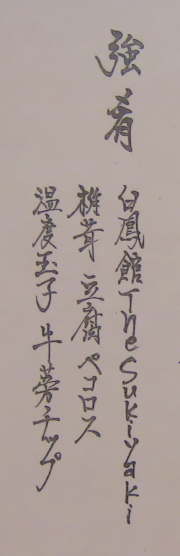 強肴
白鳳館TheSukiyaki
椎茸 豆腐 ペコロス
温度玉子 牛蒡チップ